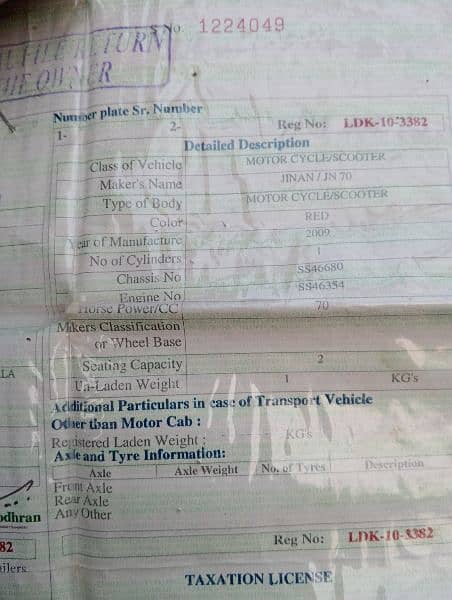 S No. 1224049
RETURN
THE OWNER
Number plate Sr. Number
1- 2- Reg No: LDK-10-3382
Detailed Description
Class of Vehicle MOTOR CYCLE/SCOOTER
Maker's Name JINAN / JN 70
Type of Body MOTOR CYCLE/SCOOTER
Color RED
Year of Manufacture 2009
No of Cylinders 1
Chassis No SS46680
Engine No SS46354
Horse Power/CC 70
Makers Classification
or Wheel Base
Seating Capacity 2
LA
Un-Laden Weight 1 KG's
Additional Particulars in case of Transport Vehicle
Other than Motor Cab :
Registered Laden Weight : KG's
Axle and Tyre Information:
Axle Axle Weight No. of Tyres Description
Front Axle
Rear Axle
odhran Any Other
82 Reg No: LDK-10-3382
ilers
TAXATION LICENSE